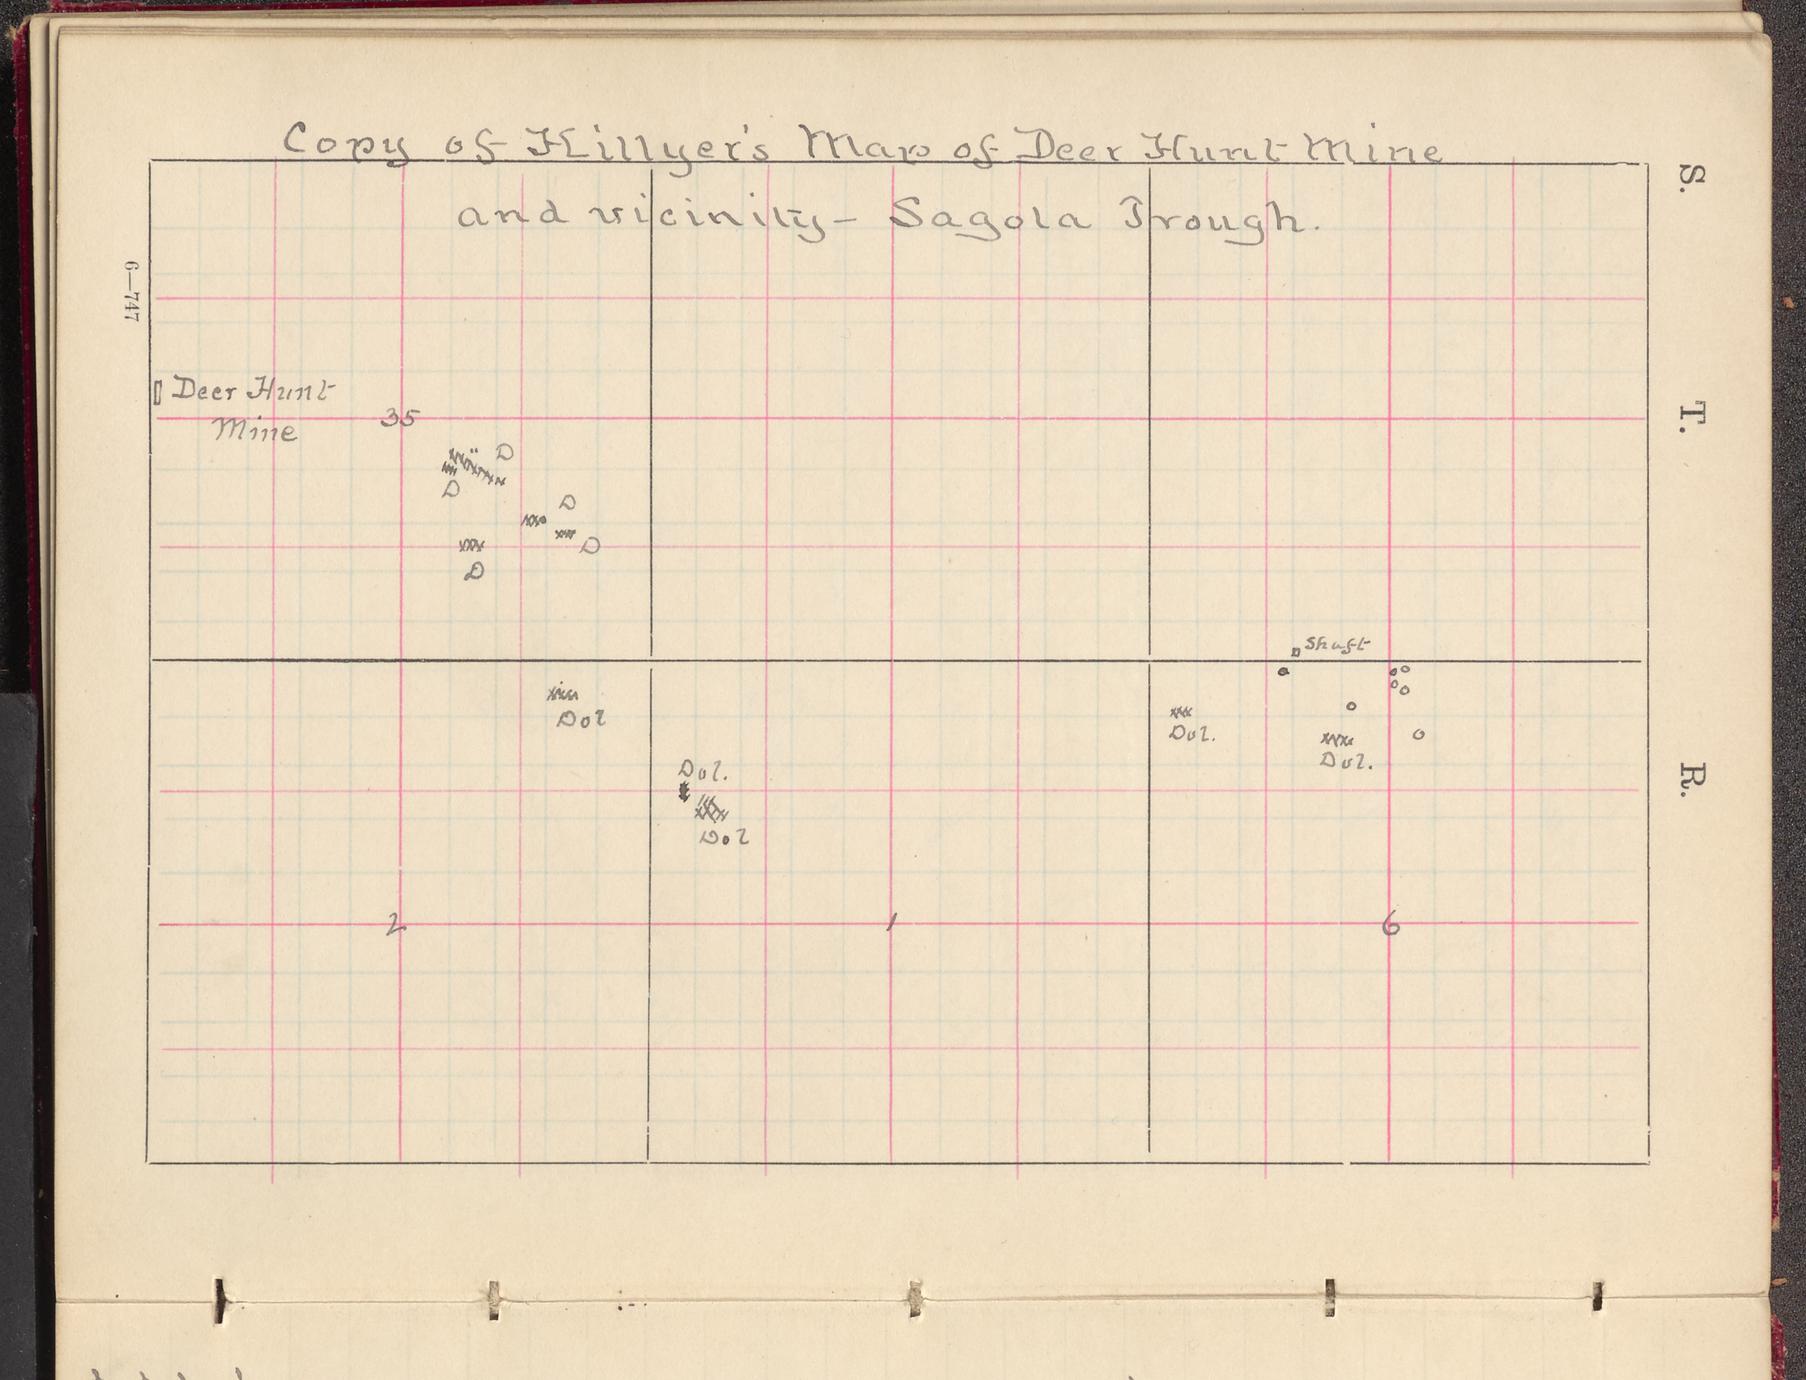 Copy of Hillyer's Map of Deer Hunt Mine
and vicinity - Sagola Trough.
S.
6—747
Deer Hunt
Mine
35
T.
D
D
D
D
D
Shaft
Dol
Dol.
Dol.
Dol.
Dol
R.
2
1
6